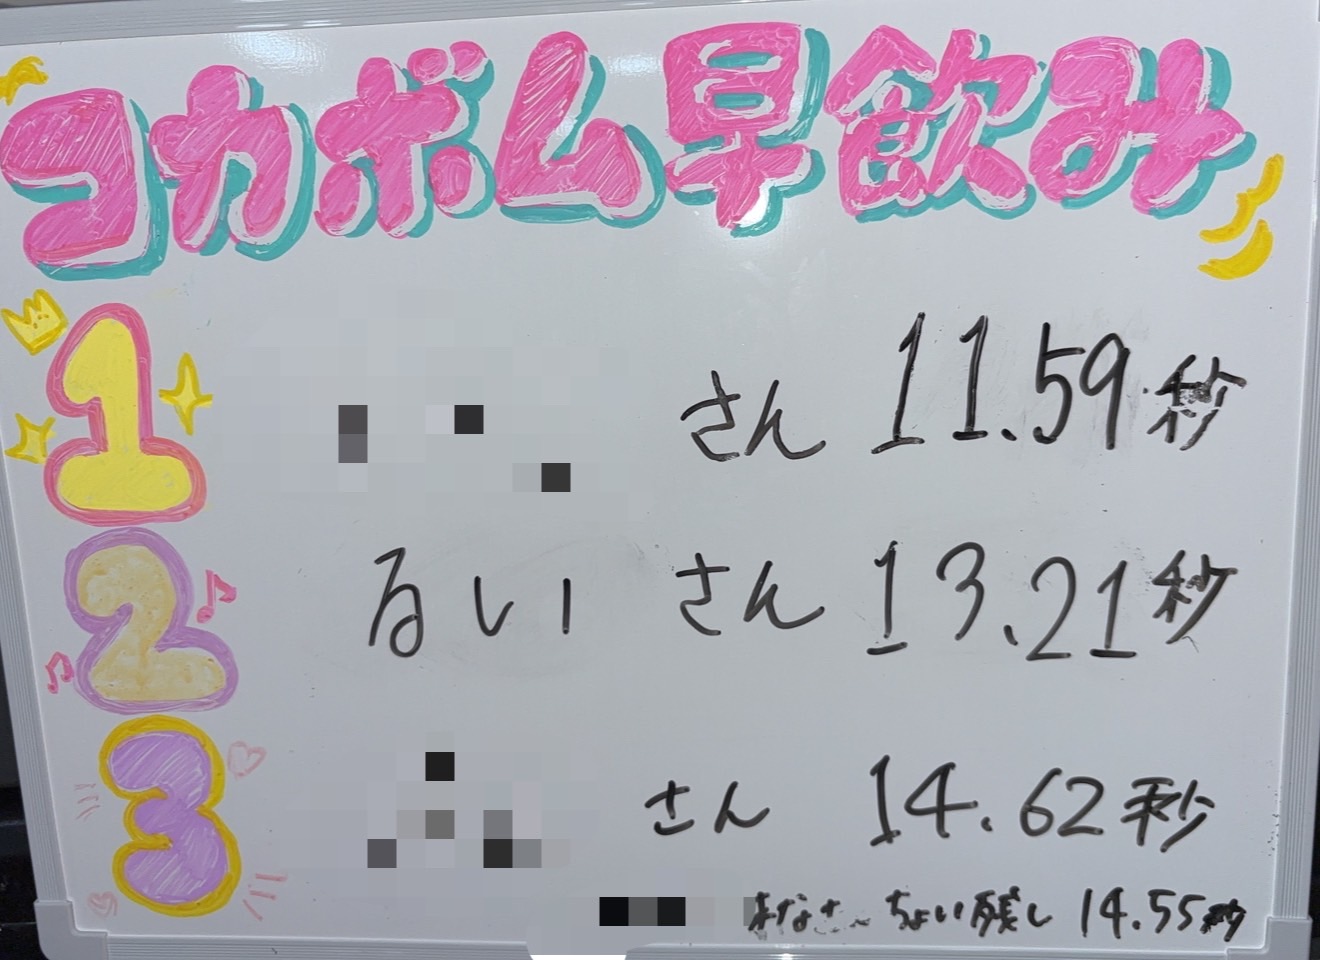 コカボム早飲み
1 さん 11.59秒
2 るい さん 13.21秒
3 さん 14.62秒
ちょい残し 14.55秒